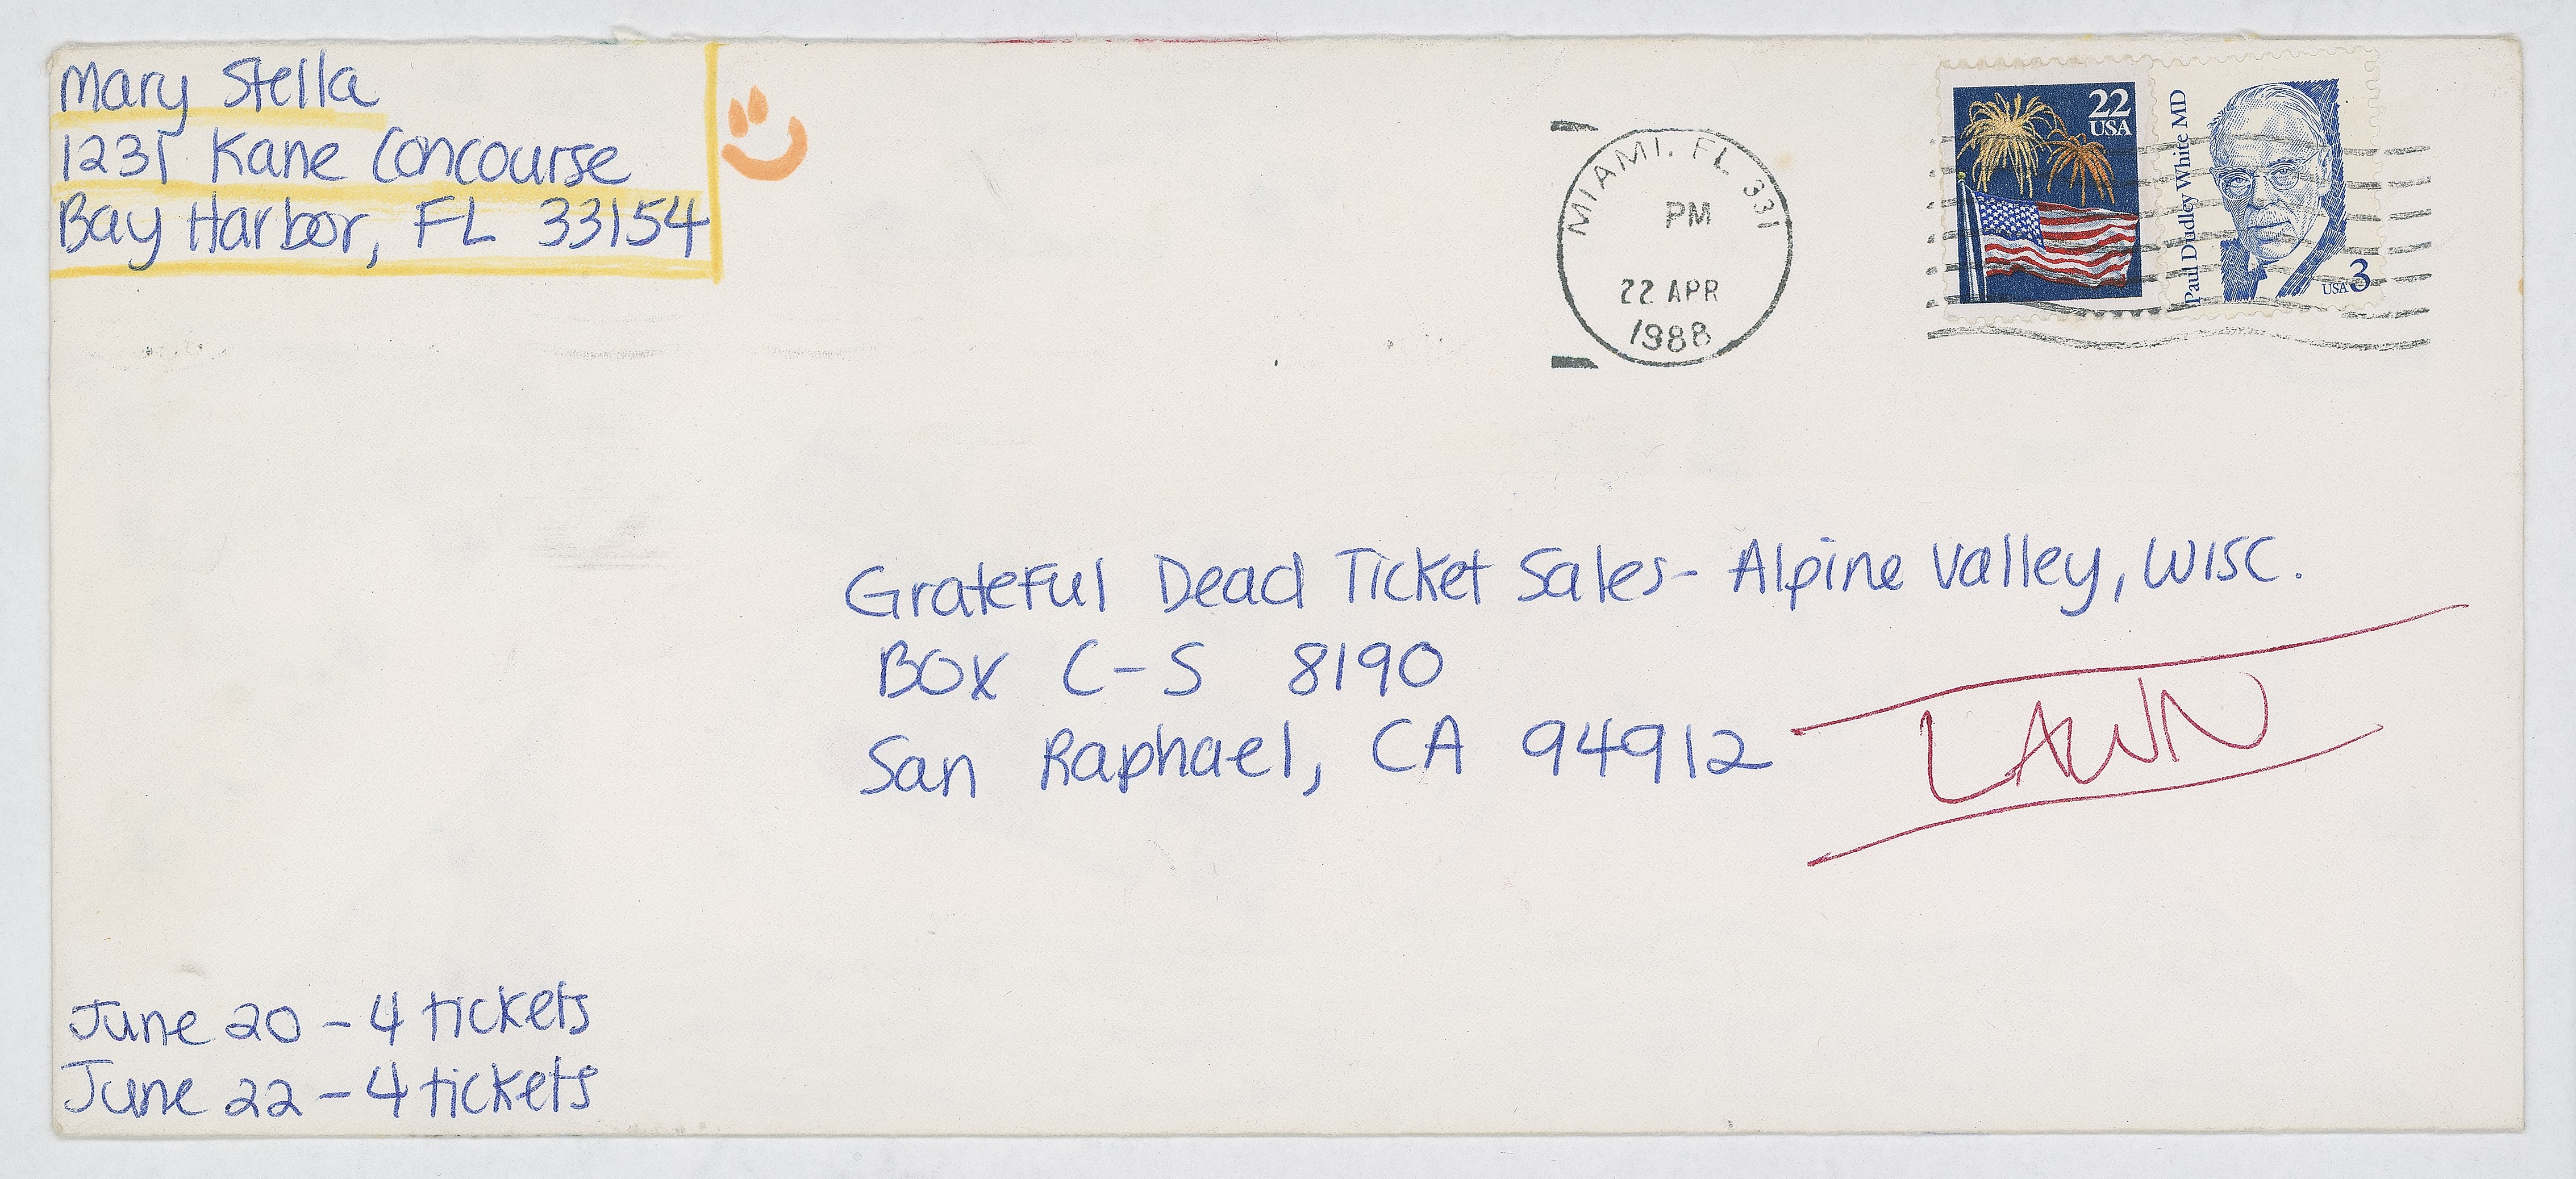 Mary Stella
1231 Kane Concourse
Bay Harbor, FL 33154
MIAMI. FL 331
PM
22 APR
1988
22
USA
Paul Dudley White MD
USA 3
Grateful Dead Ticket Sales- Alpine Valley, WISC.
BOX C-S 8190
San Raphael, CA 94912
LAWN
June 20 - 4 tickets
June 22 - 4 tickets